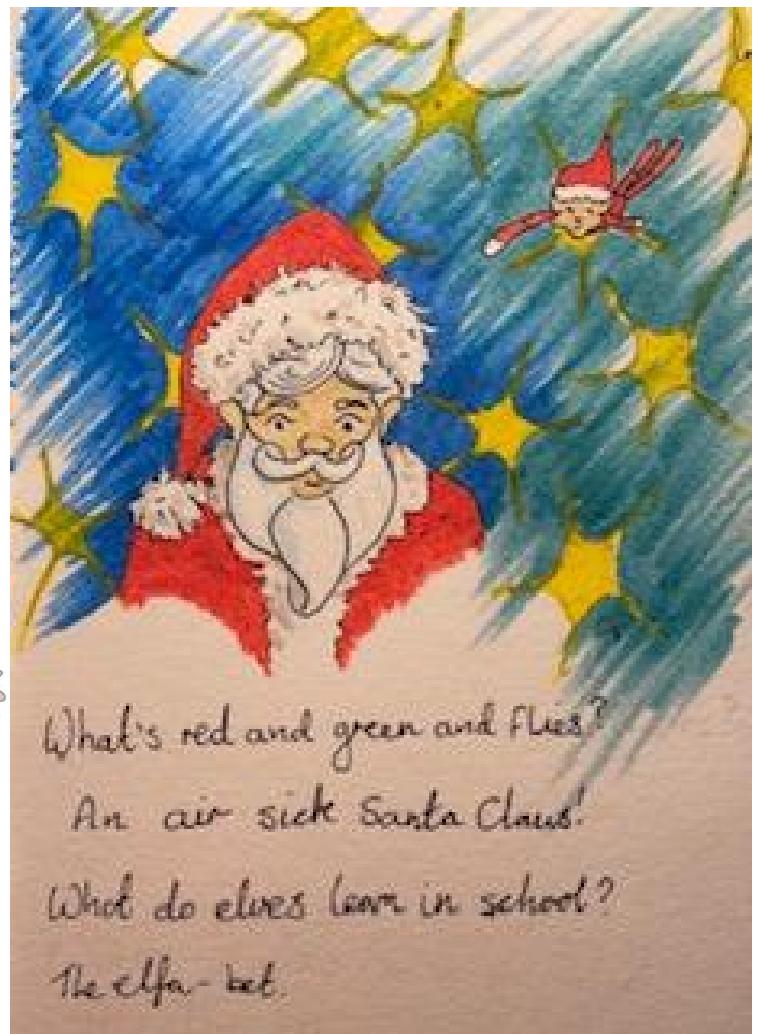 What's red and green and flies?
An air sick Santa Claus!
What do elves learn in school?
The elfa-bet.